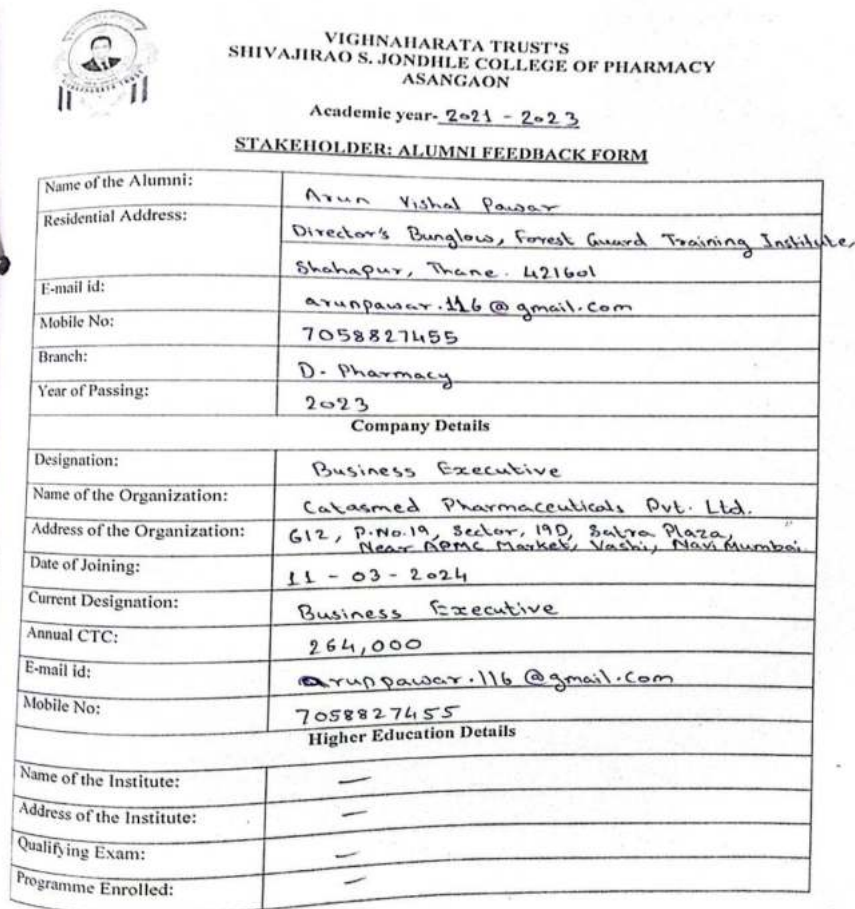 VIGHNAHARATA TRUST'S
SHIVAJIRAO S. JONDHLE COLLEGE OF PHARMACY
ASANGAON
Academic year- 2021 - 2023
STAKEHOLDER: ALUMNI FEEDBACK FORM
Name of the Alumni: Arun Vishal Pawar
Residential Address: Director's Bunglow, Forest Guard Training Institute,
Shahapur, Thane. 421601
E-mail id: arunpawar.116@gmail.com
Mobile No: 7058827455
Branch: D. Pharmacy
Year of Passing: 2023
Company Details
Designation: Business Executive
Name of the Organization: Catasmed Pharmaceuticals Pvt. Ltd.
Address of the Organization: G12, P.No.19, Sector, 19D, Satra Plaza,
Near APMC Market, Vashi, Navi Mumbai.
Date of Joining: 11 - 03 - 2024
Current Designation: Business Executive
Annual CTC: 264,000
E-mail id: arunpawar.116@gmail.com
Mobile No: 7058827455
Higher Education Details
Name of the Institute: —
Address of the Institute: —
Qualifying Exam: —
Programme Enrolled: —